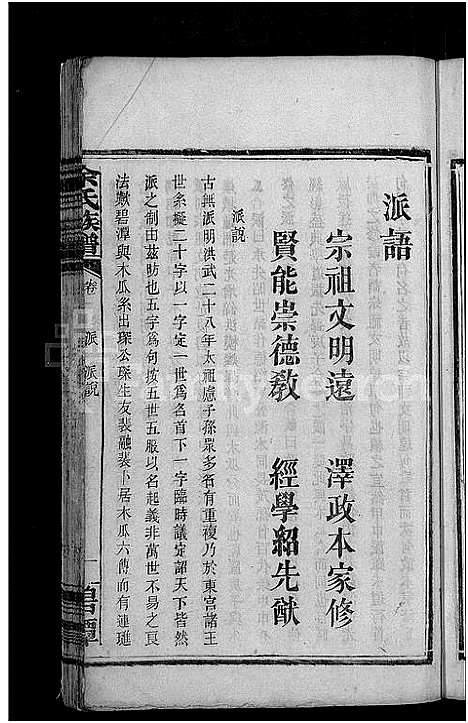 派語
宗祖文明遠　澤政本家修
賢能崇德教　經學紹先猷
派說
古無派明洪武二十八年太祖慮子孫眾多名有重複乃於東宮諸王
世系擬二十字以一字定一世爲名首下一字臨時議定詔天下皆然
派之制由茲昉也五字爲句按五世五服以名起義非萬世不易之良
法歟碧潭與木瓜系出琛公琛生友裴融裴卜居木瓜六傳而有連璡
余氏族譜
卷
派　派說
一